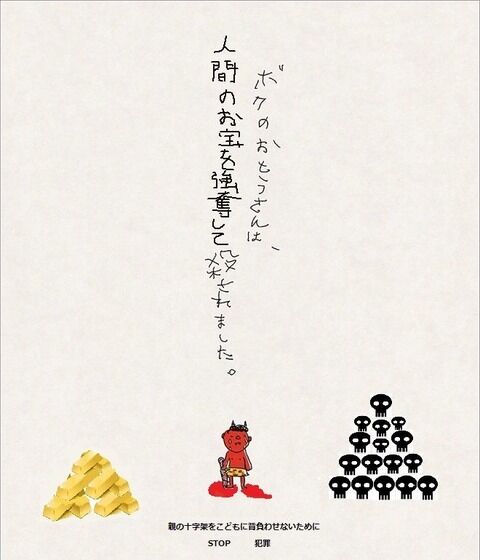 ボクのおとうさんは、
人間のお宝を強奪して殺されました。
親の十字架をこどもに背負わせないために
STOP 犯罪